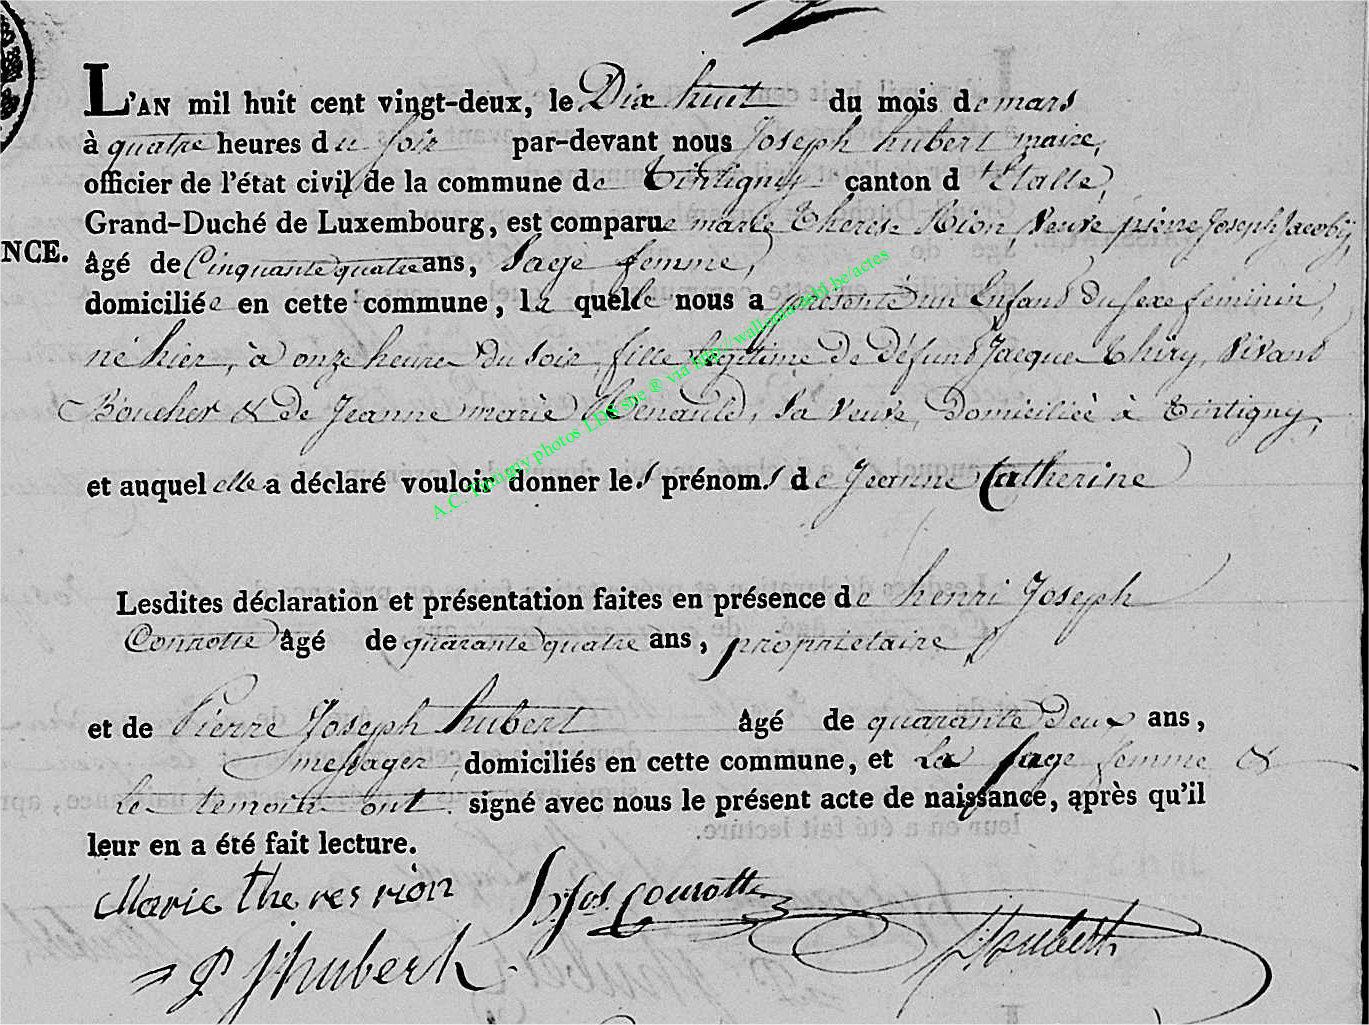 L'AN mil huit cent vingt-deux, le Dix huit du mois de mars
à quatre heures du soir par-devant nous Joseph hubert maire,
officier de l'état civil de la commune de Tintigny canton d'Etalle,
Grand-Duché de Luxembourg, est comparue marie Therese Rion, veuve pierre Joseph Jacoby,
NCE.
âgé de Cinquante quatre ans, Sage femme,
domiciliée en cette commune, la quelle nous a présenté un Enfant du sexe feminin,
né hier, à onze heures du soir, fille légitime de Défunt Jacque Thiry, vivant
Boucher & de Jeanne marie Henauld, sa veuve, Domiciliée à Tintigny,
et auquel elle a déclaré vouloir donner les prénoms de Jeanne Catherine
A.C. Tintigny photos LDB site ® via http://wallonia.mbl.be/actes
Lesdites déclaration et présentation faites en présence de henri Joseph
Connotte âgé de quarante quatre ans, propriétaire
et de Pierre Joseph hubert âgé de quarante Deux ans,
messager domiciliés en cette commune, et la sage femme &
le temoin ont signé avec nous le présent acte de naissance, après qu'il
leur en a été fait lecture.
Marie the res rion
P J hubert
J hubert